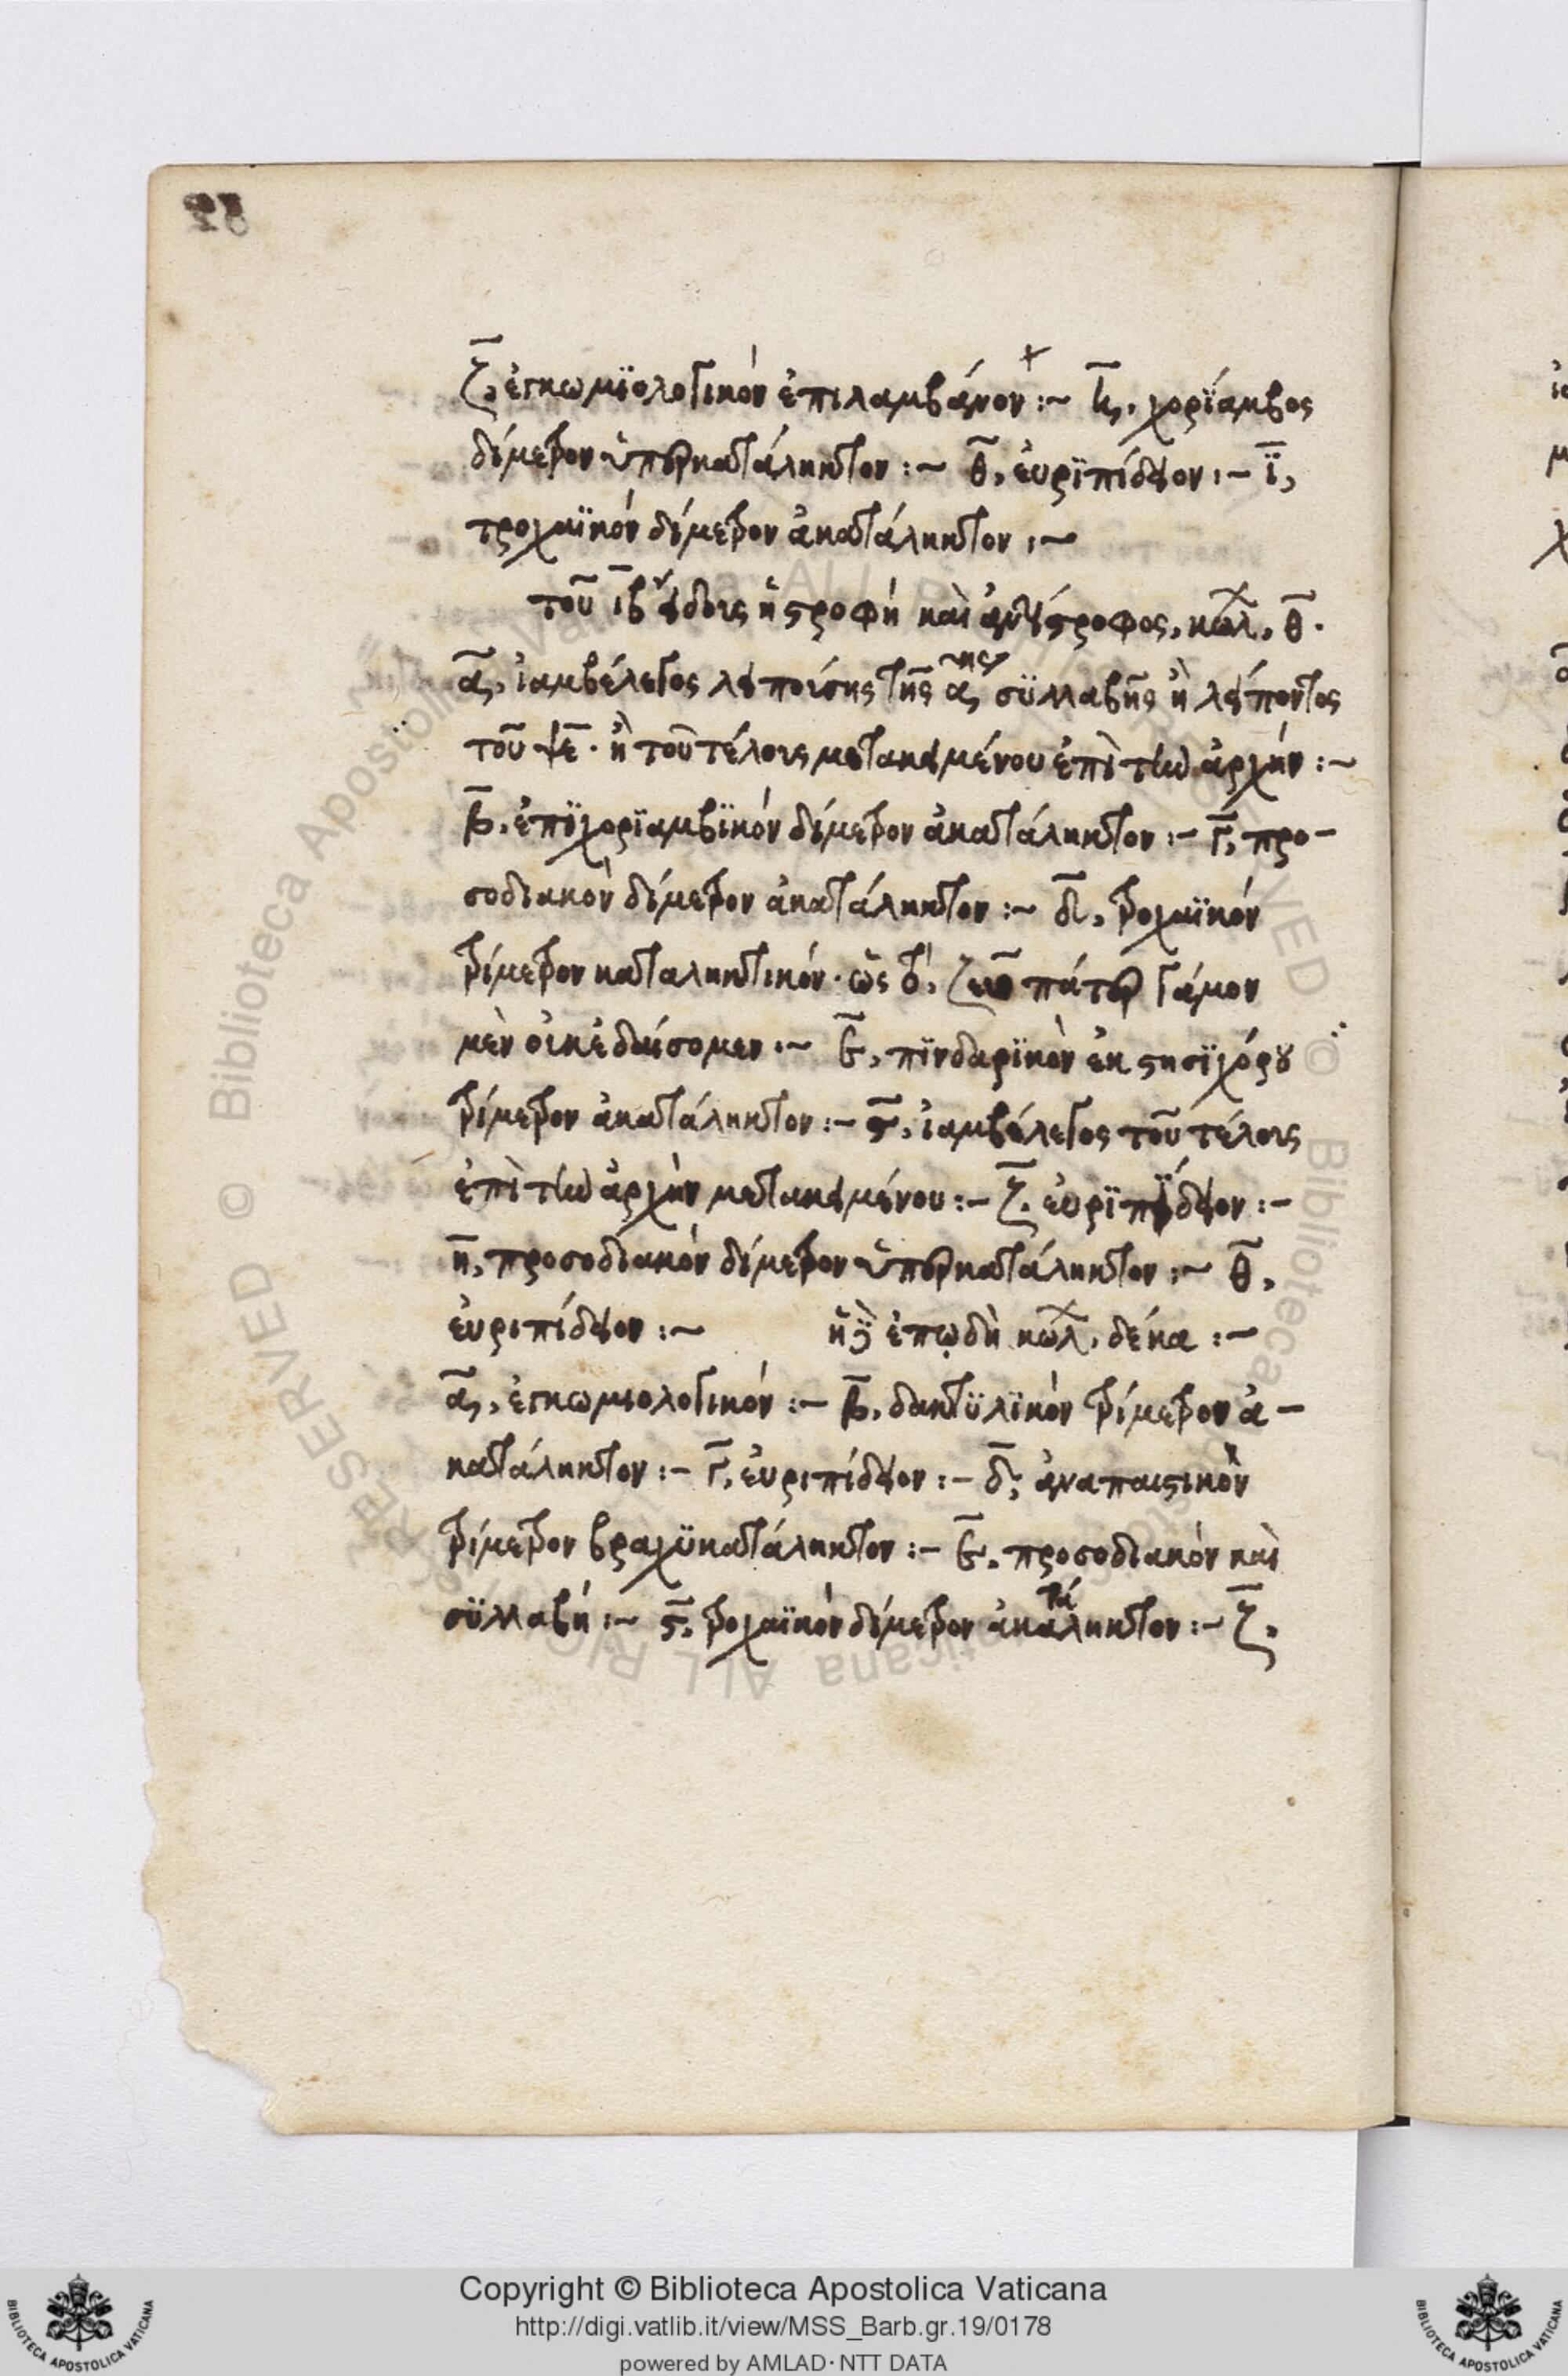 ζ, ἐγκωμϊολογικὸν ἐπιλαμβάνον :~ η, χορϊάμβος
δίμετρον ὑπερκατάληκτον :~ θ, εὐρϊπίδειον :~ ϊ,
τροχαϊκὸν δίμετρον ἀκατάληκτον :~
τοῦ ιβ εἴδους ἡ στροφὴ καὶ ἀντίστροφος, κώλ, θ.
α, ἰαμβέλεγος λειπούσης τῆς α ης σϋλλαβῆς ἢ λείποντος
τοῦ · ἢ τοῦ τέλους μετακειμένου ἐπὶ τὴν ἀρχήν :~
β, ἐπϊχορϊαμβϊκὸν δίμετρον ἀκατάληκτον :~ γ, προ-
σοδιακὸν δίμετρον ἀκατάληκτον :~ δ, τροχαϊκὸν
τρίμετρον καταληκτικόν · ὡς ζεῦ πάτερ γάμον
μὲν οὐκ ἐδαίσομεν :~ ε, πϊνδαρϊκὸν ἐκ στησϊχόρου
τρίμετρον ἀκατάληκτον :~ ς, ἰαμβέλεγος τοῦ τέλους
ἐπὶ τὴν ἀρχὴν μετακειμένου :~ ζ, εὐρϊπίδειον :~
η, προσοδιακὸν δίμετρον ὑπερκατάληκτον :~ θ,
εὐριπίδειον :~ ἡ δὲ ἐπῳδὴ κώλ, δέκα :~
α, ἐγκωμιολογικόν :~ β, δακτϋλϊκὸν τρίμετρον ἀ-
κατάληκτον :~ γ, εὐριπίδειον :~ δ, ἀναπαιστικὸν
τρίμετρον βραχϋκατάληκτον :~ ε, προσοδιακὸν καὶ
σϋλλαβή :~ ς, τροχαϊκὸν δίμετρον ἀκατάληκτον :~ ζ,
Copyright © Biblioteca Apostolica Vaticana
http://digi.vatlib.it/view/MSS_Barb.gr.19/0178
powered by AMLAD · NTT DATA